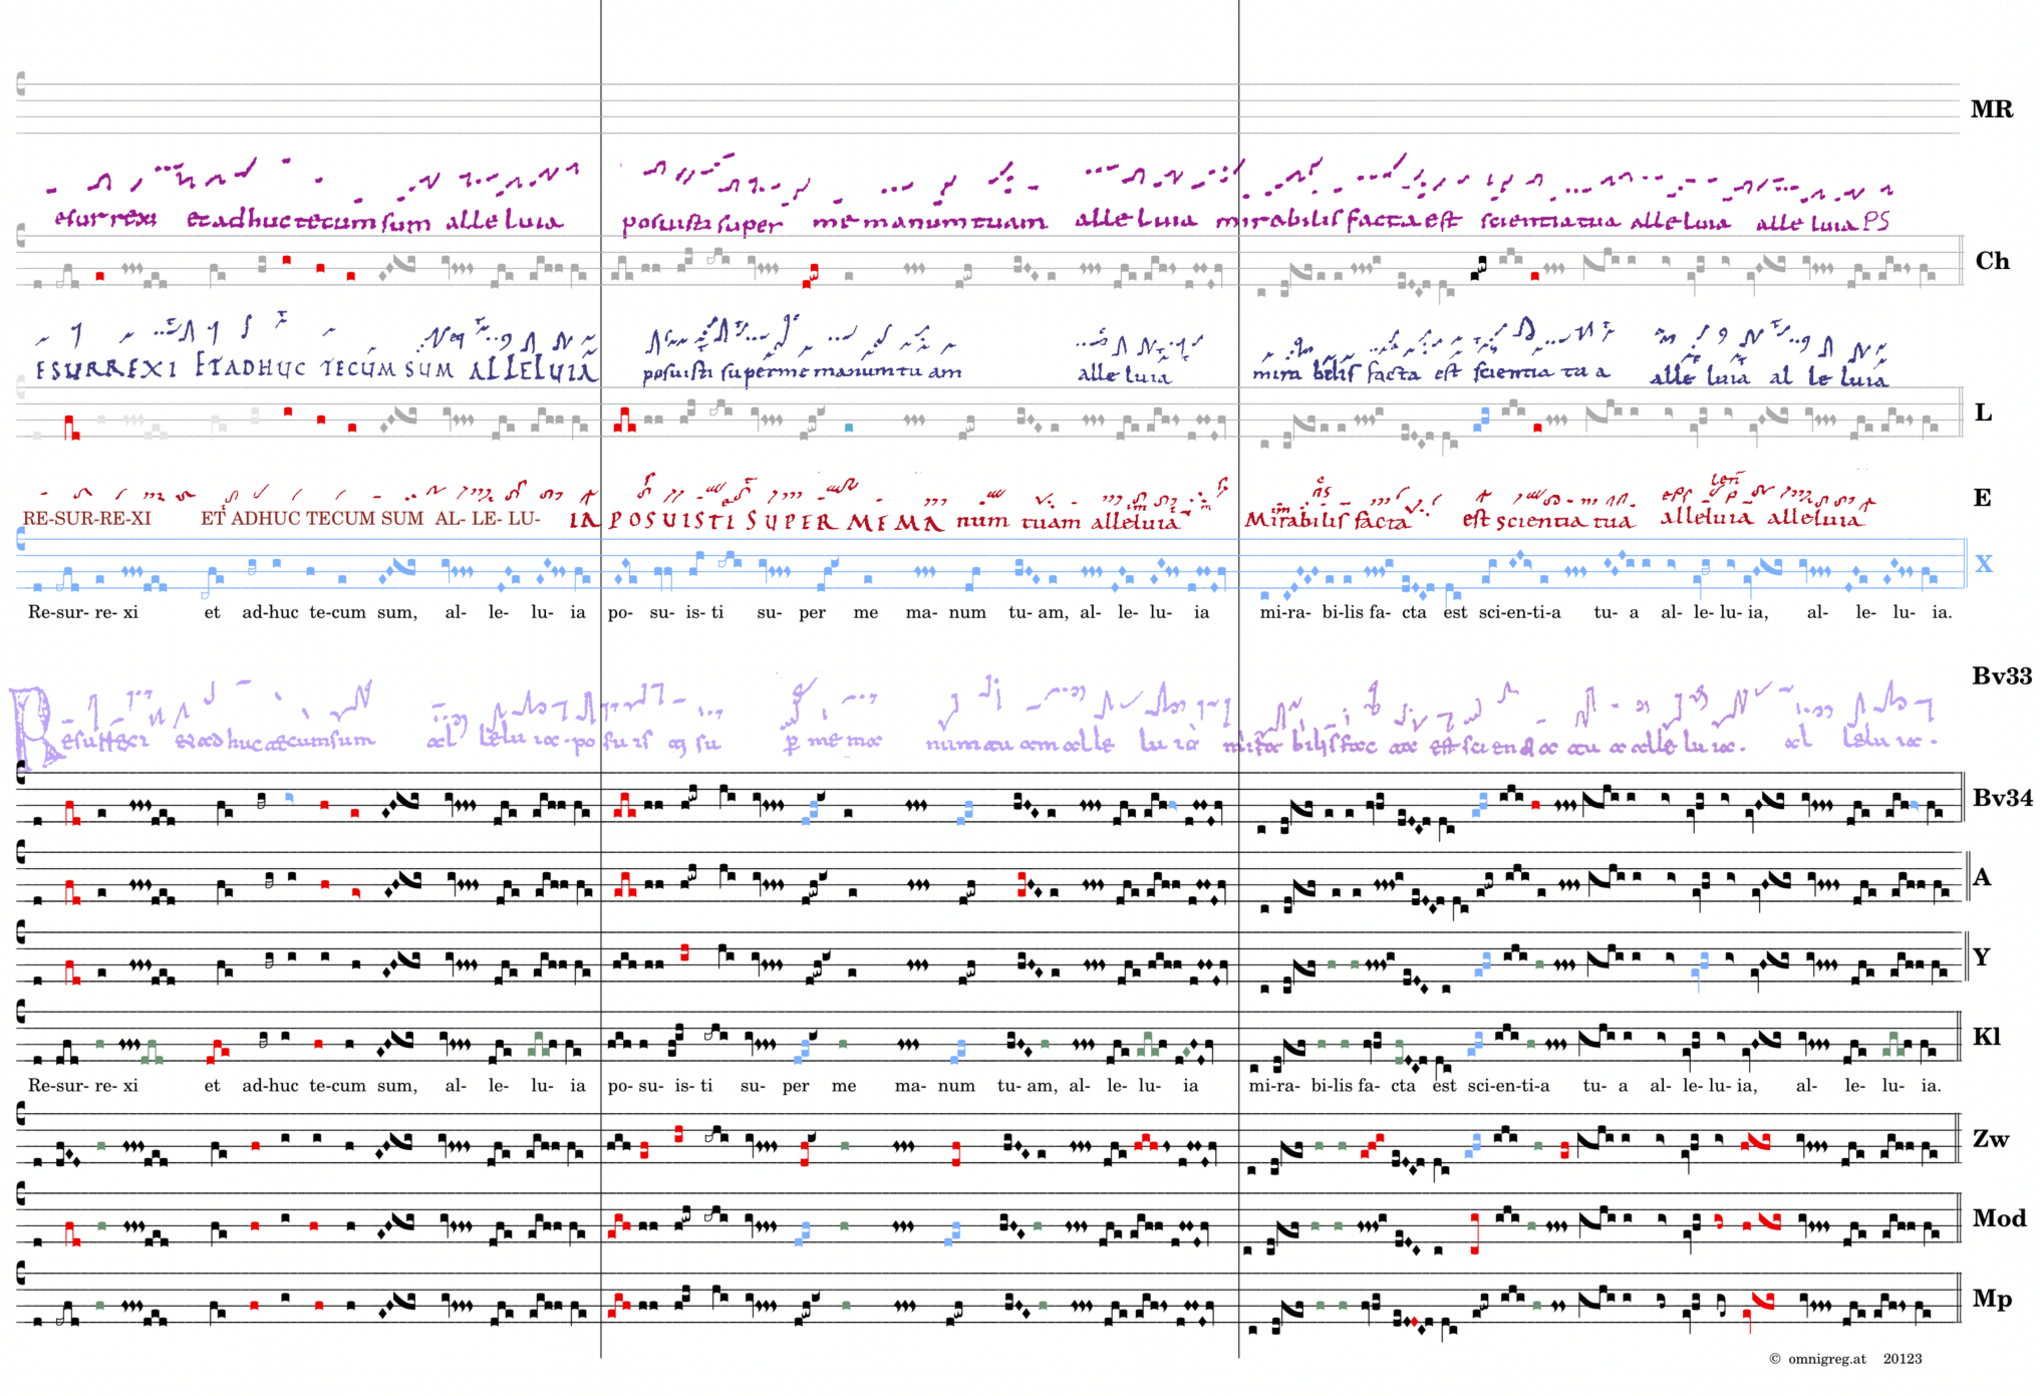 MR
esurrexi et adhuc tecum sum alleluia posuisti super me manum tuam alleluia mirabilis facta est scientia tua alleluia alleluia PS
Ch
ESURREXI ET ADHUC TECUM SUM ALLELUIA posuisti super me manum tu am alle luia mira bilis facta est scientia tu a alle luia al le luia
L
RE-SUR-RE-XI ET ADHUC TECUM SUM AL- LE- LU- IA POSUISTI SUPER ME MA num tuam alleluia Mirabilis facta est scientia tua alleluia alleluia
E
X
Re-sur- re- xi et ad-huc te-cum sum, al- le- lu- ia po- su- is- ti su- per me ma- num tu- am, al- le- lu- ia mi-ra- bi-lis fa- cta est sci-en-ti-a tu- a al- le- lu- ia, al- le- lu- ia.
Bv33
Bv34
A
Y
Kl
Re-sur- re- xi et ad-huc te-cum sum, al- le- lu- ia po- su- is- ti su- per me ma- num tu- am, al- le- lu- ia mi-ra- bi-lis fa- cta est sci-en-ti-a tu- a al- le- lu- ia, al- le- lu- ia.
Zw
Mod
Mp
© omnigreg.at 20123